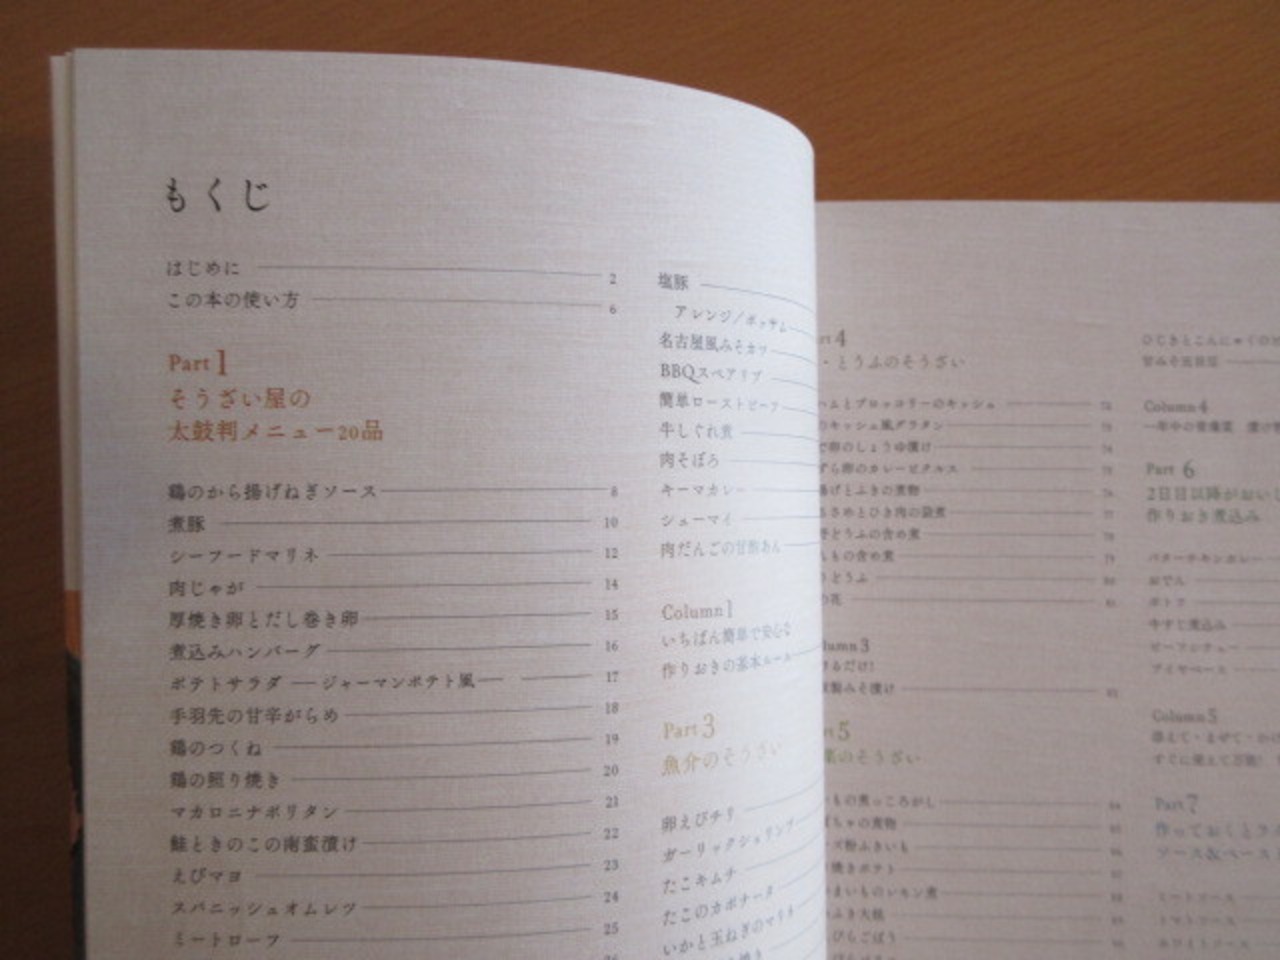 もくじ
はじめに 2
この本の使い方 6
Part 1
そうざい屋の
太鼓判メニュー20品
鶏のから揚げねぎソース 8
煮豚 10
シーフードマリネ 12
肉じゃが 14
厚焼き卵とだし巻き卵 15
煮込みハンバーグ 16
ポテトサラダ ― ジャーマンポテト風 17
手羽先の甘辛がらめ 18
鶏のつくね 19
鶏の照り焼き 20
マカロニナポリタン 21
鮭ときのこの南蛮漬け 22
えびマヨ 23
スパニッシュオムレツ 24
ミートローフ 25
塩豚
アレンジ／ポッサム
名古屋風みそカツ
BBQスペアリブ
簡単ローストビーフ
牛しぐれ煮
肉そぼろ
キーマカレー
シューマイ
肉だんごの甘酢あん
Column 1
いちばん簡単で安心な
作りおきの基本ルール
Part 3
魚介のそうざい
卵えびチリ
ガーリックシュリンプ
たこキムチ
たこのカポナータ
いかと玉ねぎのマリネ
4
・とうふのそうざい
ハムとブロッコリーのキッシュ
キッシュ風グラタン
卵のしょうゆ漬け
ずら卵のカレーピクルス
揚げとふきの煮物
さめとひき肉の袋煮
どうふの含め煮
もの含め煮
どうふ
の花
umn 3
るだけ!
製みそ漬け
5
菜のそうざい
もの煮っころがし
ちゃの煮物
ズ粉ふきいも
焼きポテト
まいものレモン煮
ふき大根
ぴらごぼう
ひじきとこんにゃくの
Column 4
一年中の常備菜
Part 6
2日目以降がおいし
作りおき煮込み
バターチキンカレー
おでん
ポトフ
牛すじ煮込み
ビーフシチュー
Column 5
添えて・まぜて・かけ
すぐに使えて万能!
Part 7
作っておくとラ
ソース&ペースト
ミートソース
トマトソース
ホワイトソース